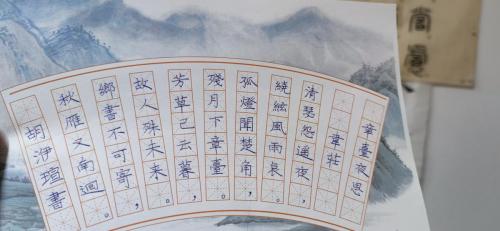 章臺夜思
韋莊
清瑟怨遙夜，
繞絃風雨哀。
孤燈聞楚角，
殘月下章臺。
芳草已云暮，
故人殊未來。
鄉書不可寄，
秋雁又南迴。
胡洢瑄書